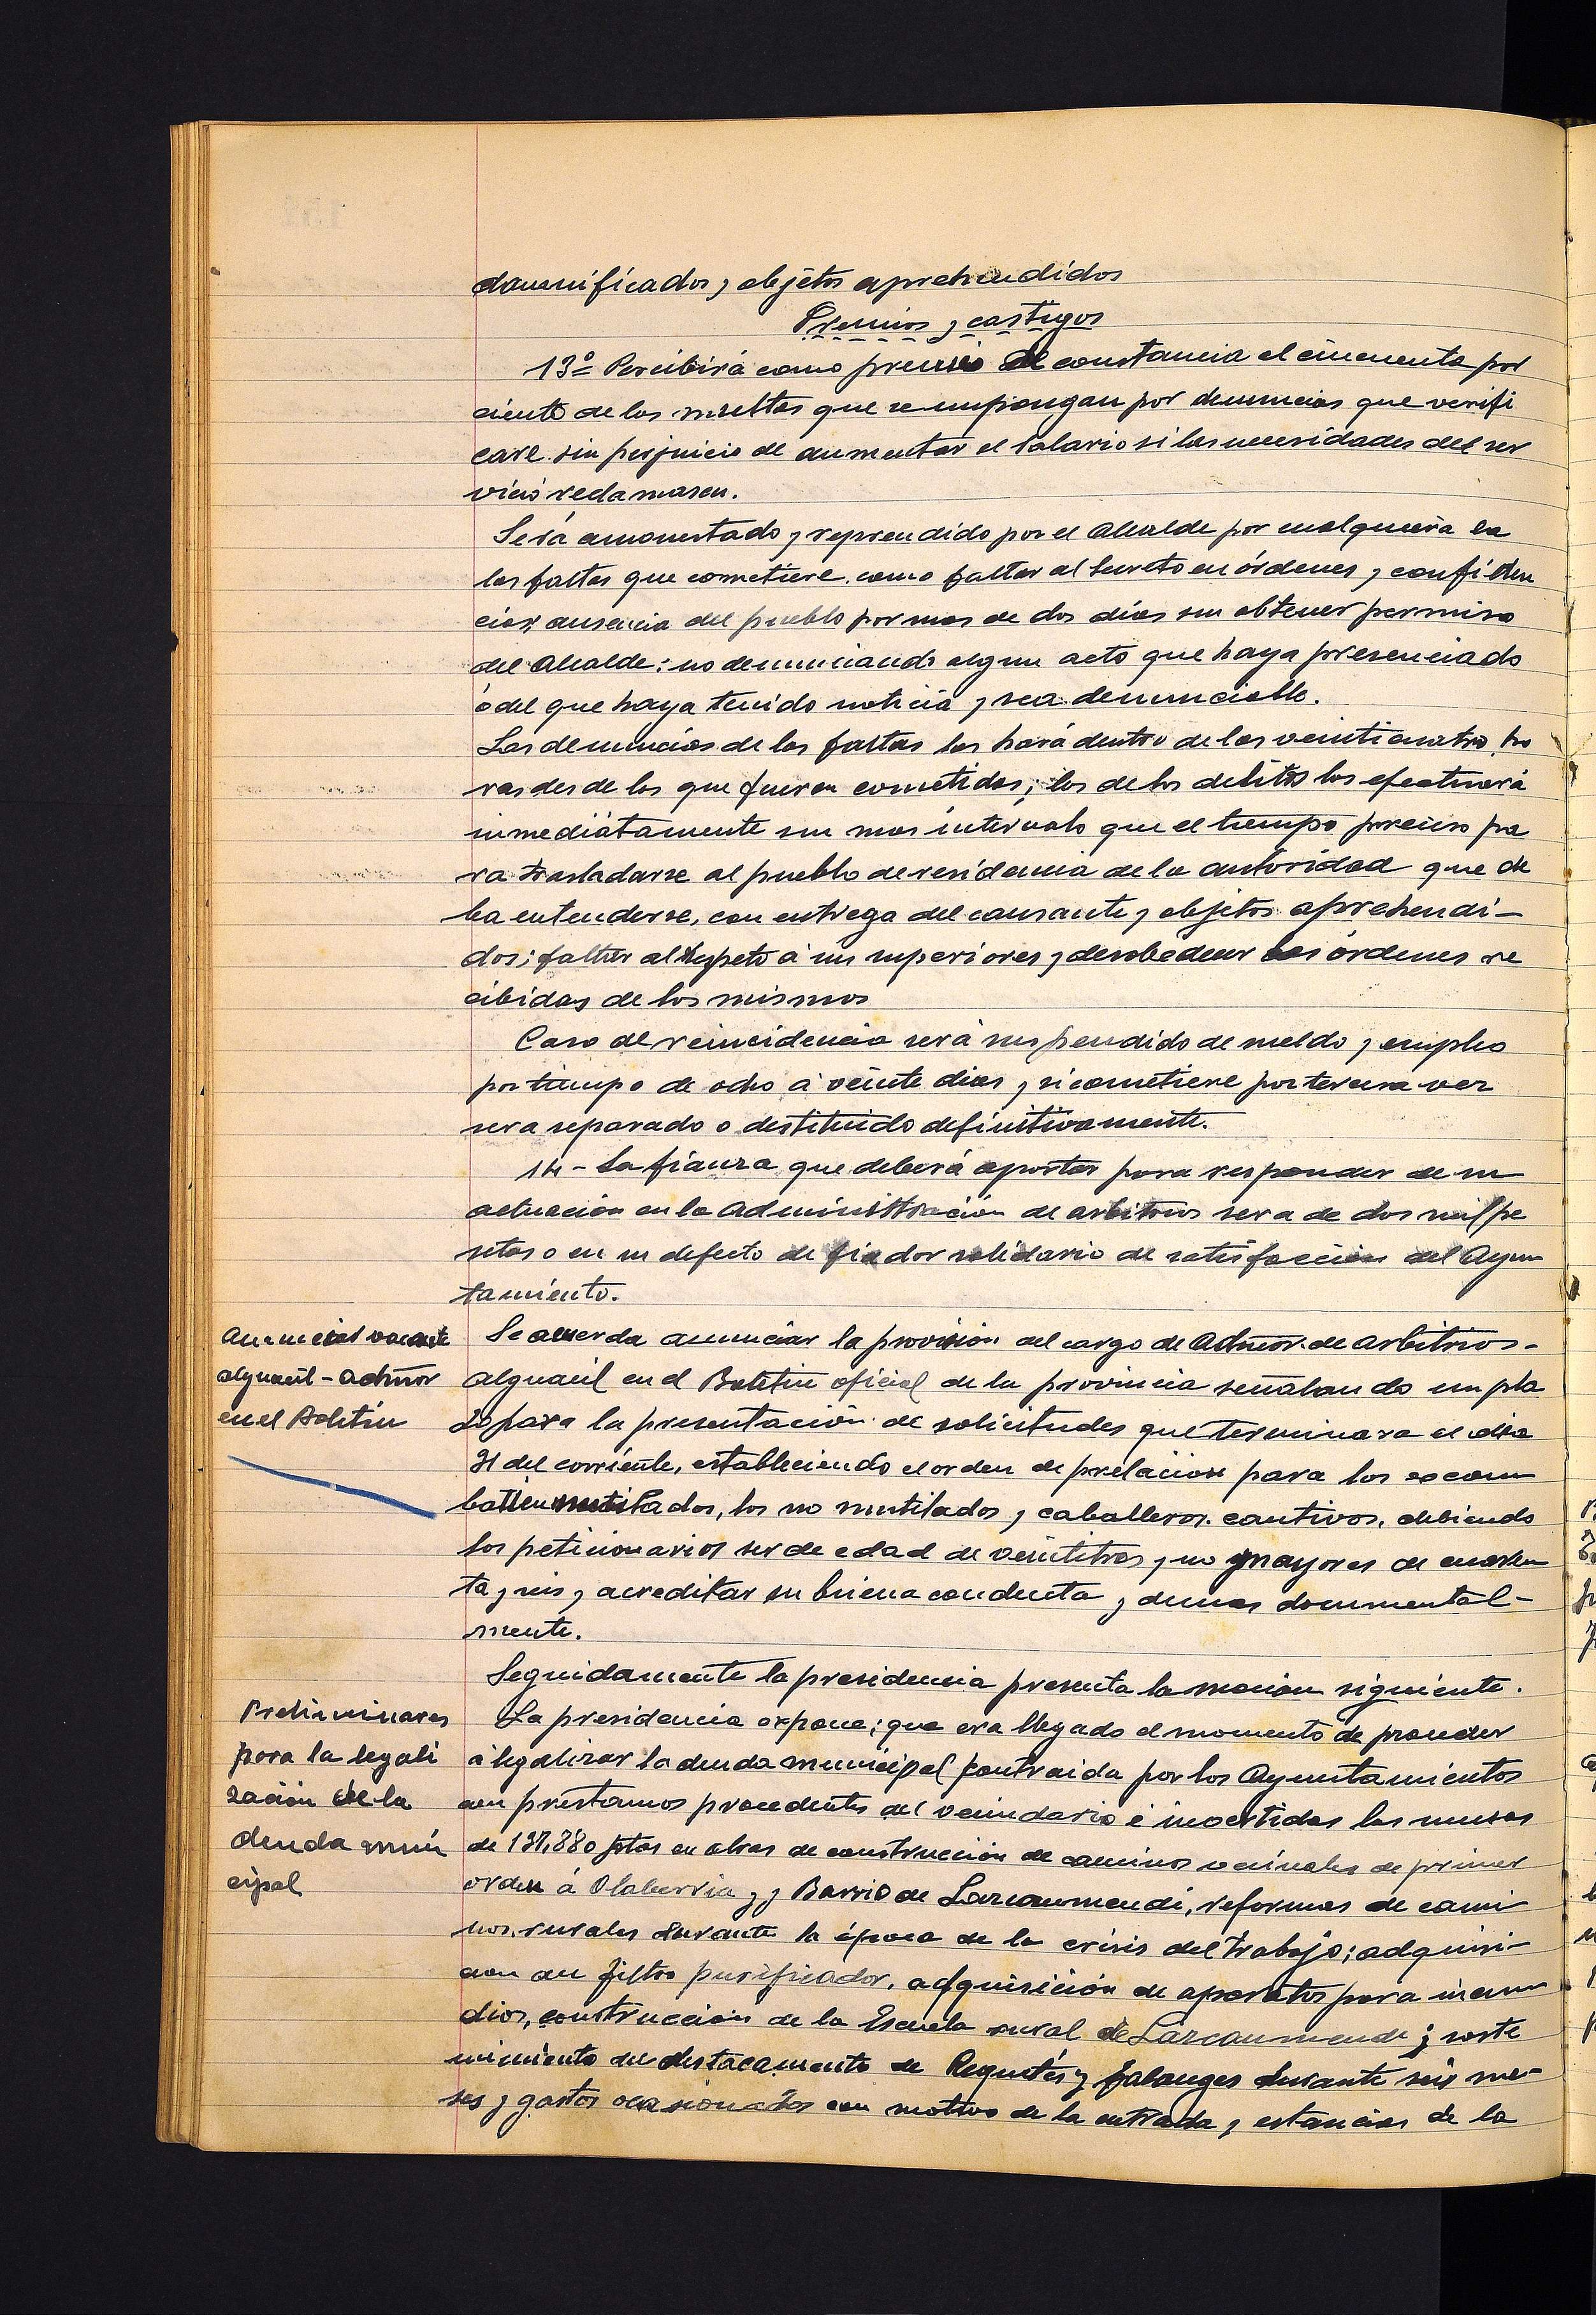 damnificados y objetos aprehendidos
Premios y castigos
13º Percibirá como premio de constancia el cincuenta por
ciento de las multas que se impongan por denuncias que verifi
care sin perjuicio de aumentar el salario si las necesidades del ser
vicio reclamasen.
Será amonestado y reprendido por el Alcalde por cualquiera de
las faltas que cometiere como faltar al secreto en órdenes y confiden
cias, ausencia del pueblo por mas de dos dias sin obtener permiso
del Alcalde: no denunciando algun acto que haya presenciado
ó del que haya tenido noticia y sea denunciable.
Las denuncias de las faltas las hará dentro de las veinticuatro ho
ras desde las que fueren cometidas; las de los delitos los efectuará
inmediatamente sin mas intervalo que el tiempo preciso pa
ra trasladarse al pueblo de residencia de la autoridad que de
ba entenderse, con entrega del causante y objetos aprehendi-
dos; faltar al respeto á sus superiores y desobedecer las órdenes re
cibidas de los mismos
Caso de reincidencia será suspendido de sueldo y empleo
por tiempo de ocho á veinte dias y si cometiere por tercera vez
sera separado o destituido definitivamente.
14- La fianza que deberá aportar para responder de su
actuación en la Administración de arbitrios sera de dos mil pe
setas o en su defecto de fiador solidario de satisfaccion del Ayun
tamiento.
Anunciar vacante
alguacil - admor
en el Boletin
Se acuerda anunciar la provision del cargo de Admor. de arbitrios-
alguacil en el Boletin oficial de la provincia señalando un pla
zo para la presentación de solicitudes que terminara el dia
31 del corriente, estableciendo el orden de prelacion para los excom
batien mutilados, los no mutilados y caballeros cautivos, debiendo
los peticionarios ser de edad de veintitres y no mayores de cuaren
ta y seis y acreditar su buena conducta y demas documental-
mente.
Seguidamente la presidencia presenta la mocion siguiente.
Preliminares
para la legali
zación de la
deuda muni
cipal
La presidencia expone; que era llegado el momento de proceder
á legalizar la deuda municipal contraida por los Ayuntamientos
con prestamos procedentes del vecindario é invertidas las mismas
de 137,880 ptas en obras de construcción de caminos vecinales de primer
orden á Olaberria y y Barrio de Lazcanomendi, reformas de cami
nos rurales durante la época de la crisis del trabajo; adquisi-
cion de filtro purificador, adquisición de aparatos para incen
dios, construccion de la Escuela rural de Lazcanomendi; soste
nimiento del destacamento de Requetés y falanges durante seis me-
ses y gastos ocasionados con motivo de la entrada y estancias de la